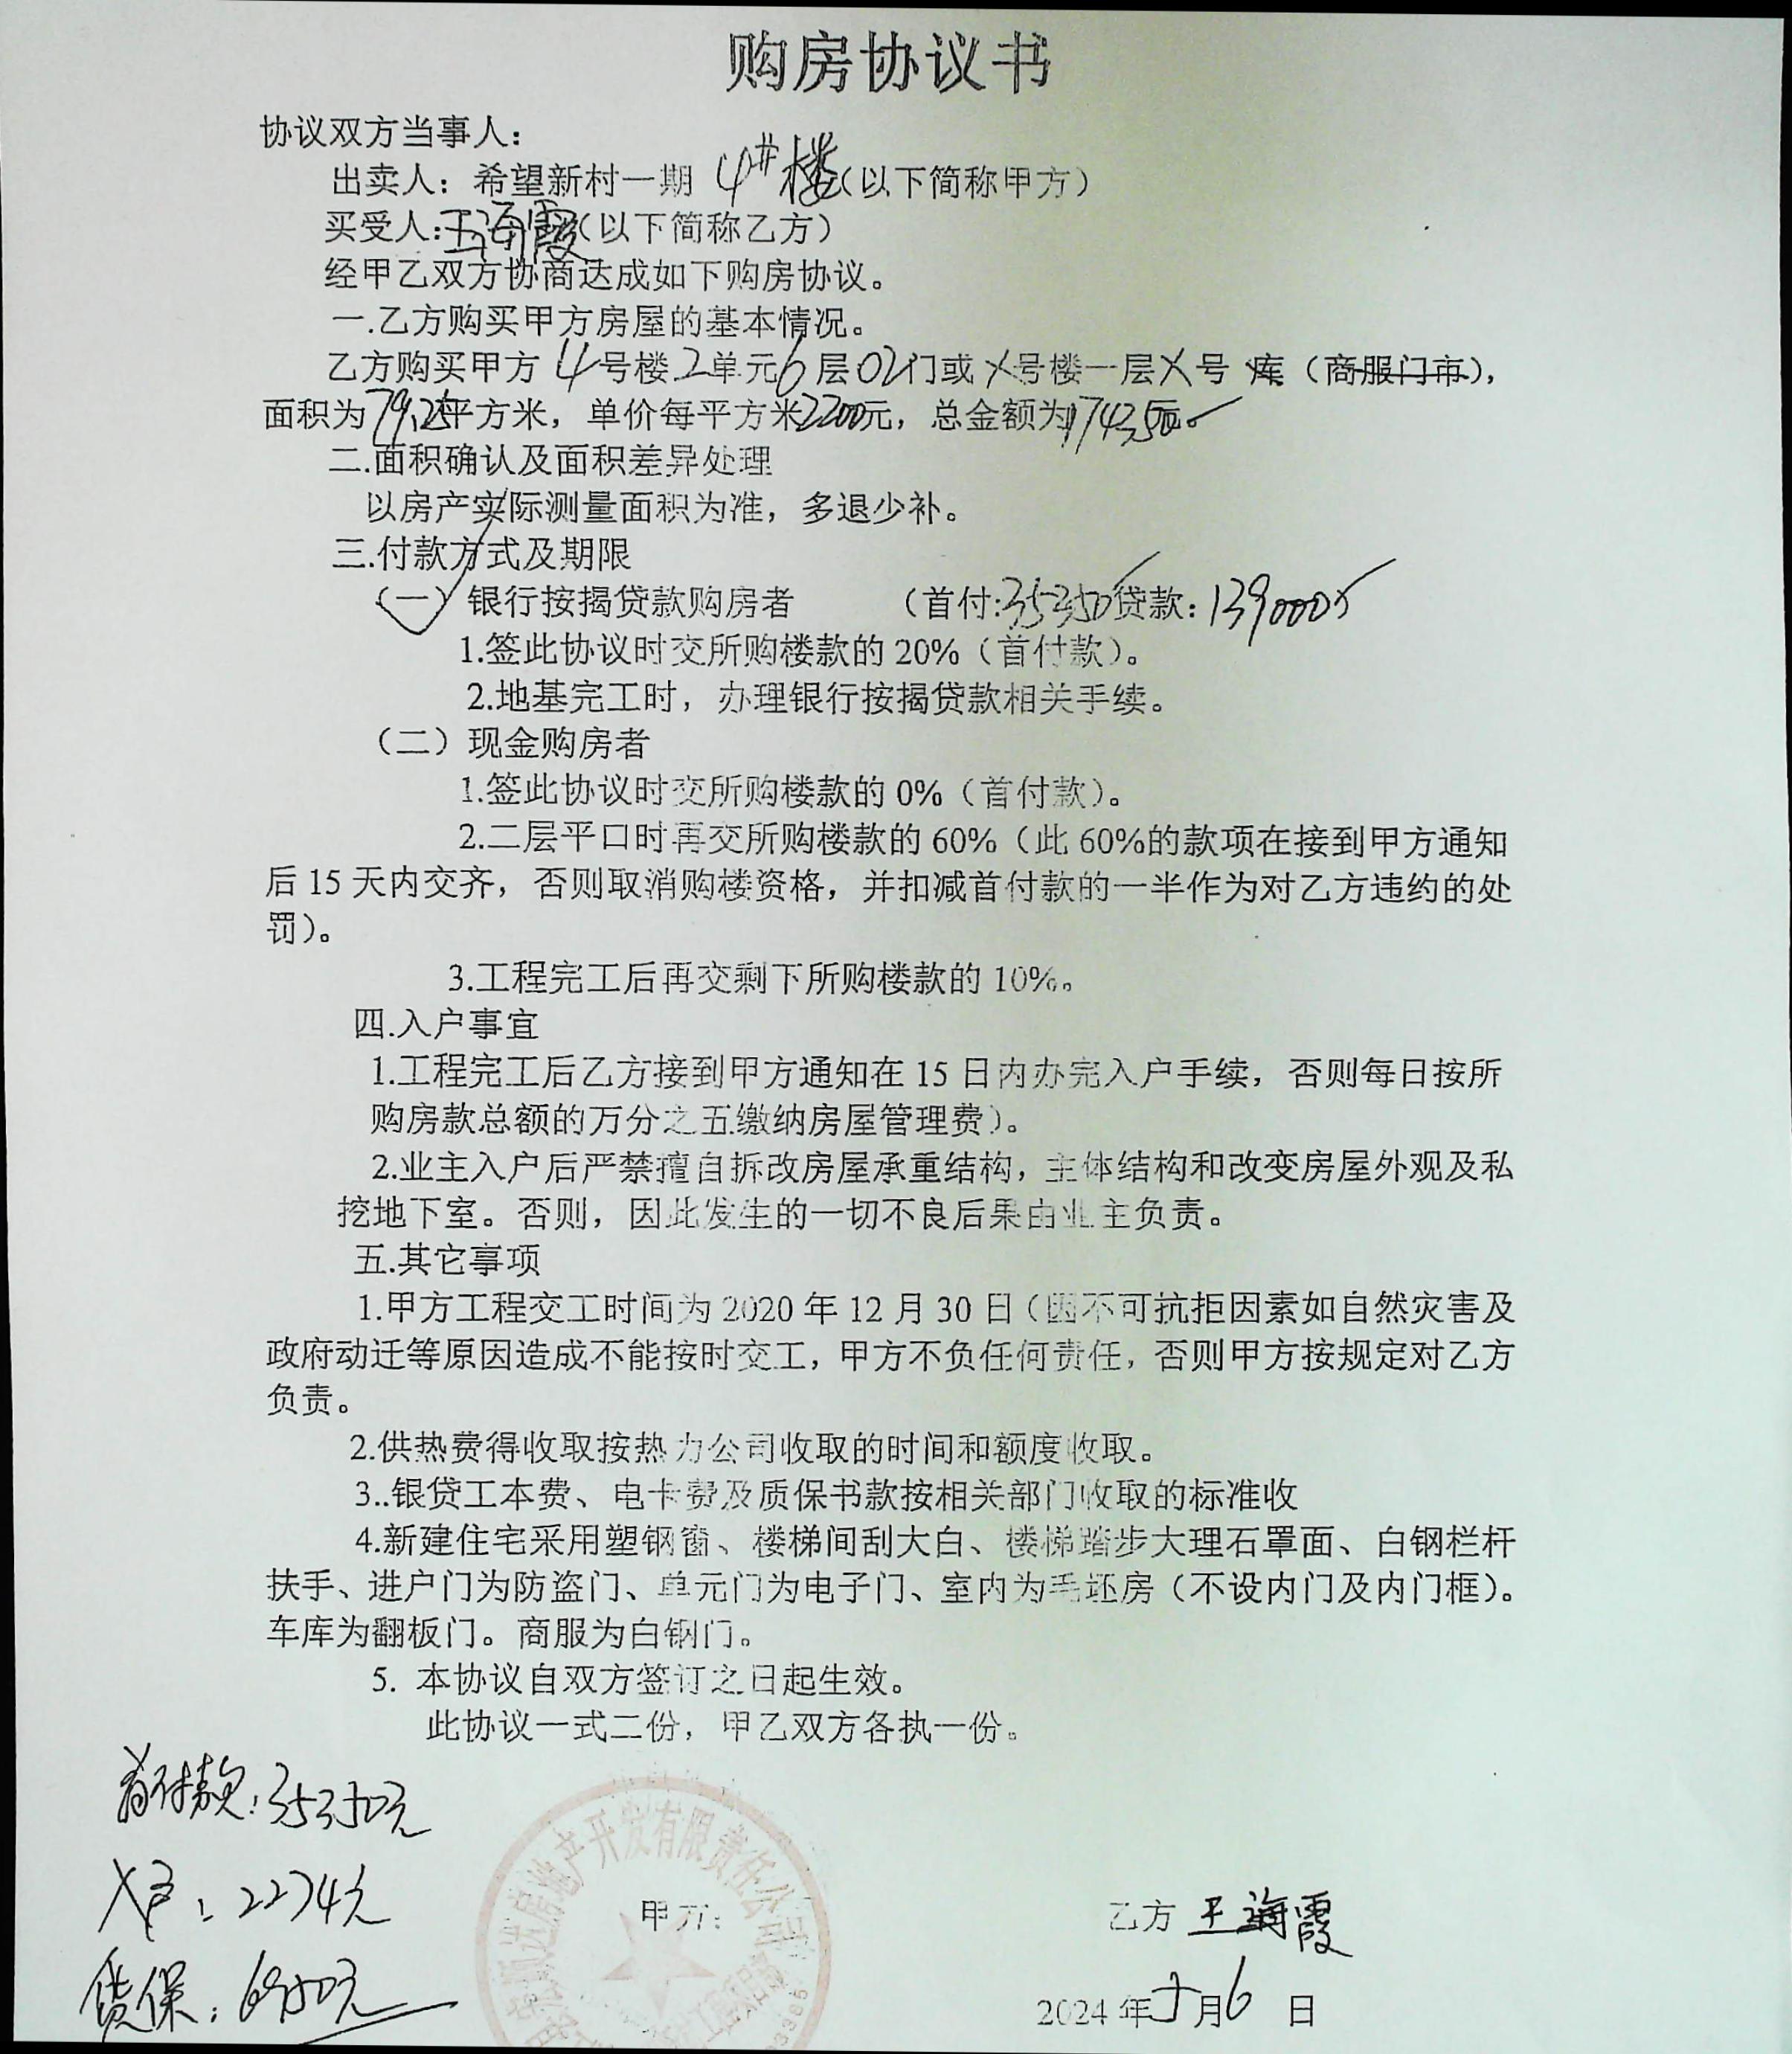 购房协议书
协议双方当事人：
出卖人：希望新村一期 4#楼（以下简称甲方）
买受人：王海霞（以下简称乙方）
经甲乙双方协商达成如下购房协议。
一.乙方购买甲方房屋的基本情况。
乙方购买甲方 4号楼2单元6层02门或X号楼一层X号 库（商服门市），
面积为79.25平方米，单价每平方米2200元，总金额为174350元。
二.面积确认及面积差异处理
以房产实际测量面积为准，多退少补。
三.付款方式及期限
（一）银行按揭贷款购房者 （首付：35350 贷款：139000
1.签此协议时交所购楼款的 20%（首付款）。
2.地基完工时，办理银行按揭贷款相关手续。
（二）现金购房者
1.签此协议时交所购楼款的 0%（首付款）。
2.二层平口时再交所购楼款的 60%（此 60%的款项在接到甲方通知
后 15 天内交齐，否则取消购楼资格，并扣减首付款的一半作为对乙方违约的处
罚）。
3.工程完工后再交剩下所购楼款的 10%。
四.入户事宜
1.工程完工后乙方接到甲方通知在 15 日内办完入户手续，否则每日按所
购房款总额的万分之五缴纳房屋管理费）。
2.业主入户后严禁擅自拆改房屋承重结构，主体结构和改变房屋外观及私
挖地下室。否则，因此发生的一切不良后果由业主负责。
五.其它事项
1.甲方工程交工时间为 2020 年 12 月 30 日（因不可抗拒因素如自然灾害及
政府动迁等原因造成不能按时交工，甲方不负任何责任，否则甲方按规定对乙方
负责。
2.供热费得收取按热力公司收取的时间和额度收取。
3..银贷工本费、电卡费及质保书款按相关部门收取的标准收
4.新建住宅采用塑钢窗、楼梯间刮大白、楼梯踏步大理石罩面、白钢栏杆
扶手、进户门为防盗门、单元门为电子门、室内为毛坯房（不设内门及内门框）。
车库为翻板门。商服为白钢门。
5. 本协议自双方签订之日起生效。
此协议一式二份，甲乙双方各执一份。
首付款：35350元
入户：2274元
贷保：6950元
房地产开发有限责任公司
甲方：
乙方 王海霞
2024 年5月6 日